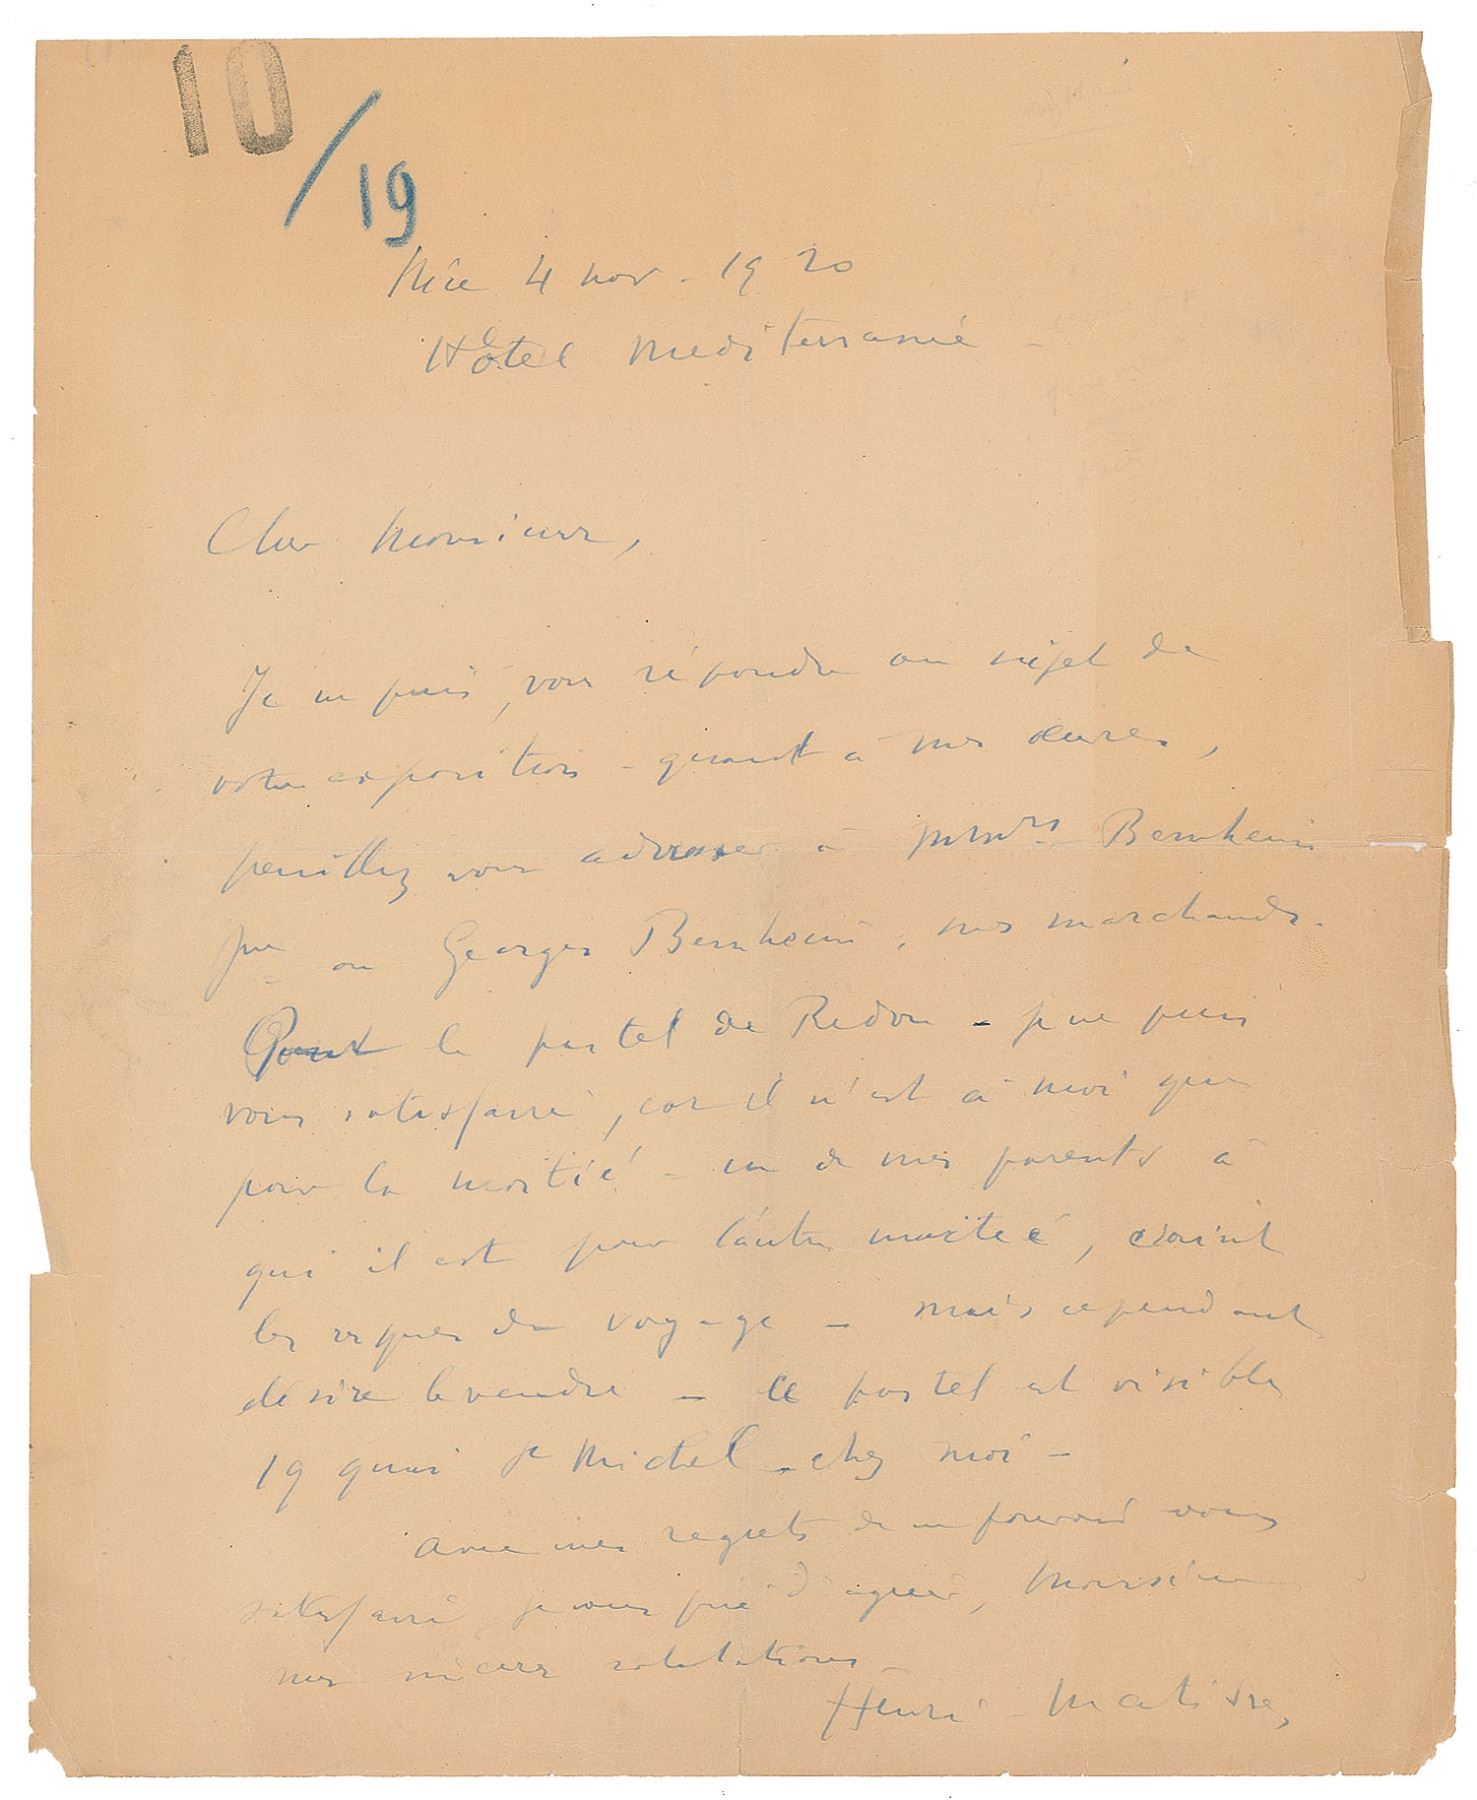 10
/19
Nice 4 nov. 1920
Hôtel Mediterranée -
Cher Monsieur,
Je ne puis, vous répondre au sujet de
votre exposition - quant à mes œuvres,
veuillez vous adresser à MMrs Bernheim
jne ou Georges Bernheim, mes marchands.
Pour le pastel de Redon - je ne puis
vous satisfaire, car il n'est à moi que
pour la moitié - un de mes parents à
qui il est pour l'autre moitié, craint
les risques du voyage - mais cependant
désire le vendre - ce pastel est visible
19 quai St Michel - chez moi -
Avec mes regrets de ne pouvoir vous
satisfaire je vous prie d'agréer, Monsieur
mes sincères salutations -
Henri Matisse,